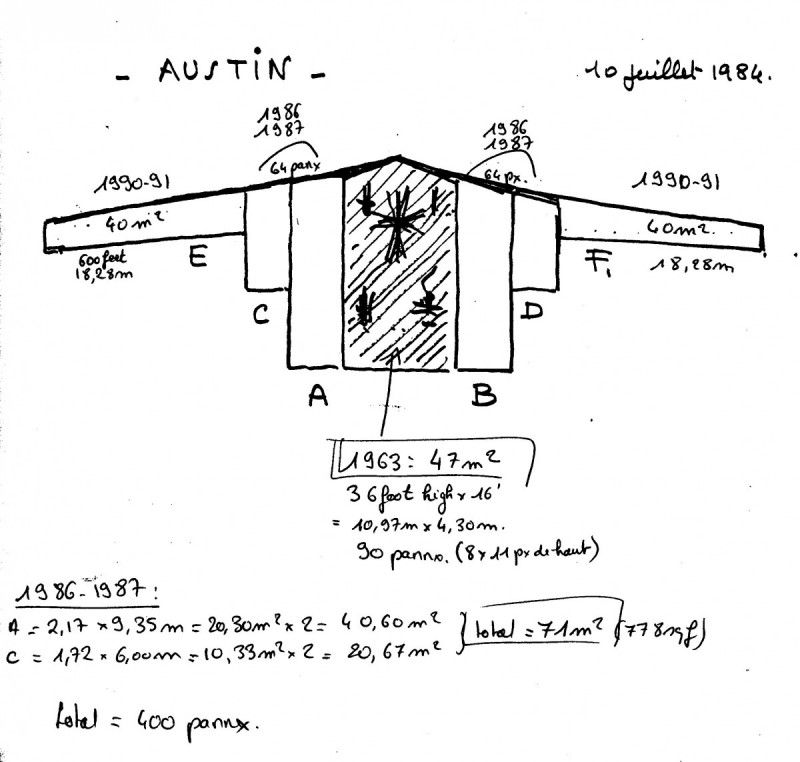 - AUSTIN -
10 juillet 1984.
1986
1987
64 panx
1986
1987
64 px.
1990-91
40m²
600 feet
18,28m
E
1990-91
40m²
F,
18,28m
C
D
A
B
1963: 47m²
36 foot high x 16'
= 10,97m x 4,30m.
90 pannx. (8 x 11 px de haut)
1986-1987:
A = 2,17 x 9,35m = 20,30m² x 2 = 40,60m²
C = 1,72 x 6,00m = 10,33m² x 2 = 20,67m²
total = 71m² (778 sq f)
total = 400 pannx.